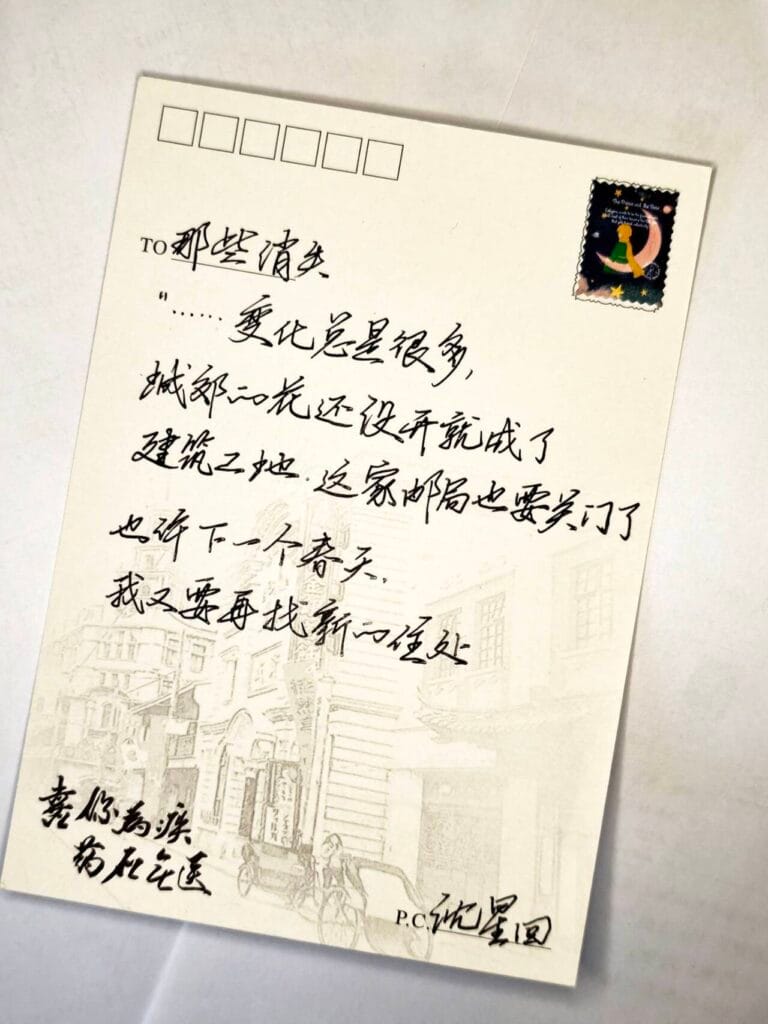 TO 那些消失
“……变化总是很多,
城郊的花还没开就成了
建筑工地.这家邮局也要关门了
也许下一个春天.
我又要再找新的住处
喜你为疾
药石无医
P.C. 沈星回